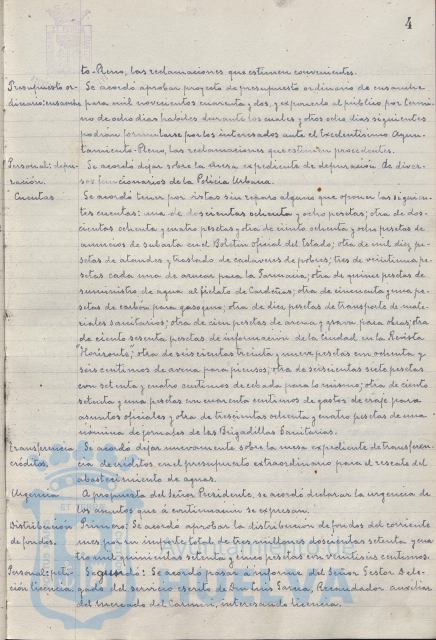 4
to-Pleno, las reclamaciones que estimen convenientes.
Presupuesto or- Se acordó aprobar proyecto de presupuesto ordinario de ensanche
dinario: ensanche para mil novecientos cuarenta y dos, y exponerlo al público por térmi-
no de ocho dias hábiles durante los cuales y otros ocho dias siguientes
podrán formularse por los interesados ante el Excelentísimo Ayun-
tamiento-Pleno, las reclamaciones que estimen procedentes.
Personal: depu- Se acordó dejar sobre la mesa expediente de depuración de diver-
ración. sos funcionarios de la Policia Urbana.
Cuentas Se acordó tener por vistas sin reparo alguno que oponer las siguien-
tes cuentas: una de doscientas ochenta y ocho pesetas; otra de dos-
cientas ochenta y cuatro pesetas y otra de ciento ochenta y ocho pesetas de
anuncios de subasta en el Boletin Oficial del Estado; otra de mil diez pe-
setas de ataudes y traslado de cadáveres de pobres; tres de veintiuna pe-
setas cada una de arenas para la Farmacia; otra de quince pesetas de
suministro de agua al fielato de Cardeñas; otra de cincuenta y una pe-
setas de carbón para gasógeno; otra de diez pesetas de transporte de mate-
riales sanitarios; otra de cien pesetas de arena y grava para obras; otra
de ciento sesenta pesetas de información de la ciudad en la Revista
"Horizonte"; otra de seiscientas treinta y nueve pesetas con ochenta y
seis centimos de avena para piensos; otra de seiscientas siete pesetas
con setenta y cuatro centimos de cebada para lo mismo; otra de ciento
setenta y una pesetas con cuarenta centimos de gastos de viaje para
asuntos oficiales y otra de trescientas ochenta y cuatro pesetas de una
nómina de jornales de las Brigadillas Sanitarias.
Transferencia Se acordó dejar nuevamente sobre la mesa expediente de transferen-
créditos. cia de créditos en el presupuesto extraordinario para el rescate del
abastecimiento de aguas.
Urgencia A propuesta del Señor Presidente, se acordó declarar la urgencia de
los asuntos que á continuación se expresan.
Distribución Primero: Se acordó aprobar la distribución de fondos del corriente
de fondos. mes por un importe total de tres millones doscientas setenta y cua-
tro mil quinientas setenta y cinco pesetas con veintiseis centimos.
Personal: peti- Segundo: Se acordó pasar á informe del Señor Gestor Dele-
ción licencia. gado del servicio escrito de Don Luis Garcia, Recaudador auxiliar
del mercado del Carmen, interesando licencia.